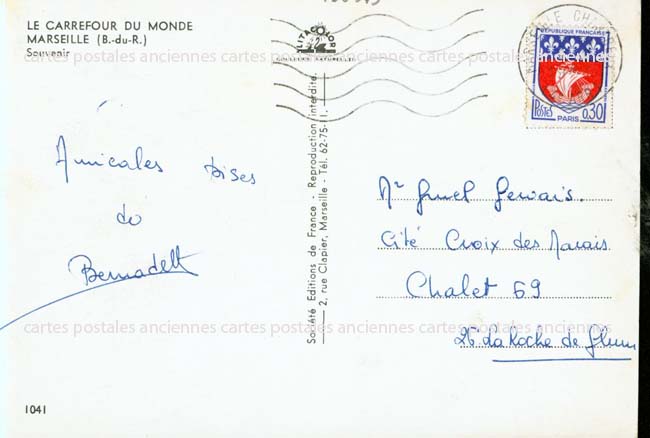 LE CARREFOUR DU MONDE
MARSEILLE (B.-du-R.)
Souvenir
RÉPUBLIQUE FRANÇAISE
POSTES
PARIS
0,30
cartes postales anciennes cartes postales anciennes cartes postales anciennes
Amicales bises
de
Bernadett
Société Editions de France - Reproduction interdite.
2, rue Clapier, Marseille - Tél. 62-75-11.
Gervais.
Cité Croix des Marais
Chalet 69
26 La Roche de Glun
cartes postales anciennes cartes postales anciennes cartes postales anciennes
1041